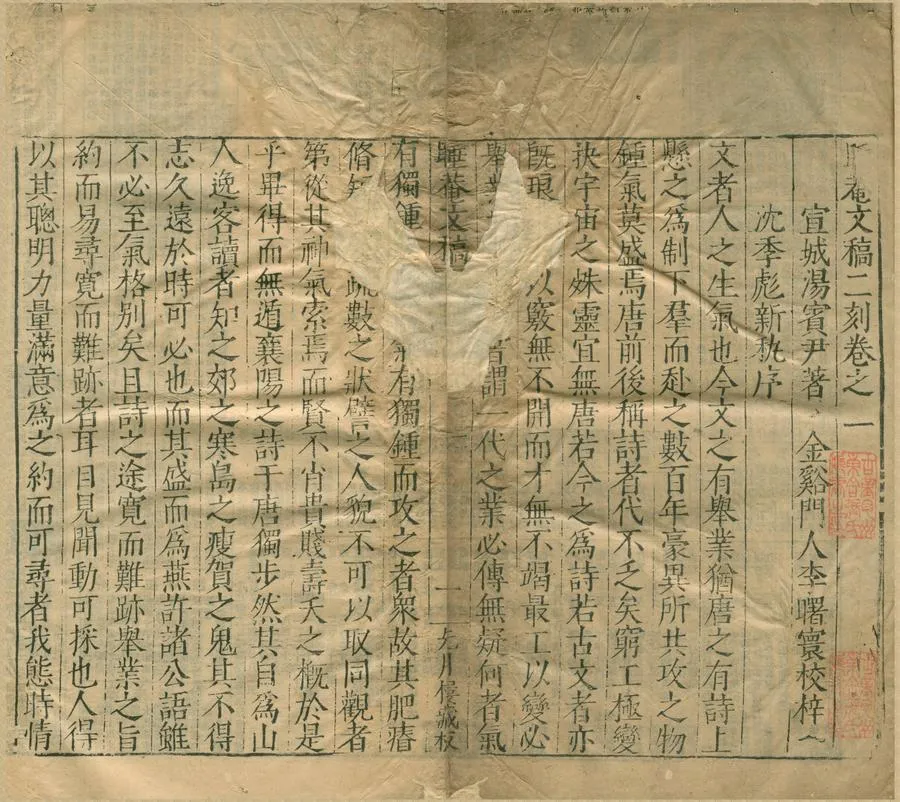 菴文稿二刻卷之一
宣城湯賓尹著 金谿門人李曙寰校梓
沈季彪新秇序
文者人之生氣也今文之有舉業猶唐之有詩上
懸之爲制下羣而赴之數百年豪異所共攻之物
鍾氣莫盛焉唐前後稱詩者代不乏矣窮工極變
抉宇宙之姝靈宜無唐若今之爲詩若古文者亦
旣琅 以竅無不開而才無不竭最工以變必
舉業 者謂一代之業必傳無疑何者氣
睡菴文稿 一 九月樓藏板
有獨鍾 氣有獨鍾而攻之者衆故其肥瘠
脩短 疏數之狀譬之人貌不可以取同觀者
第從其神氣索焉而賢不肖貴賤壽夭之概於是
乎畢得而無遁襄陽之詩于唐獨步然其自爲山
人逸客讀者知之郊之寒島之瘦賀之鬼其不得
志久遠於時可必也而其盛而爲燕許諸公語雖
不必至氣格别矣且詩之途寛而難跡舉業之旨
約而易尋寛而難跡者耳目見聞動可採也人得
以其聰明力量滿意爲之約而可尋者我態時情